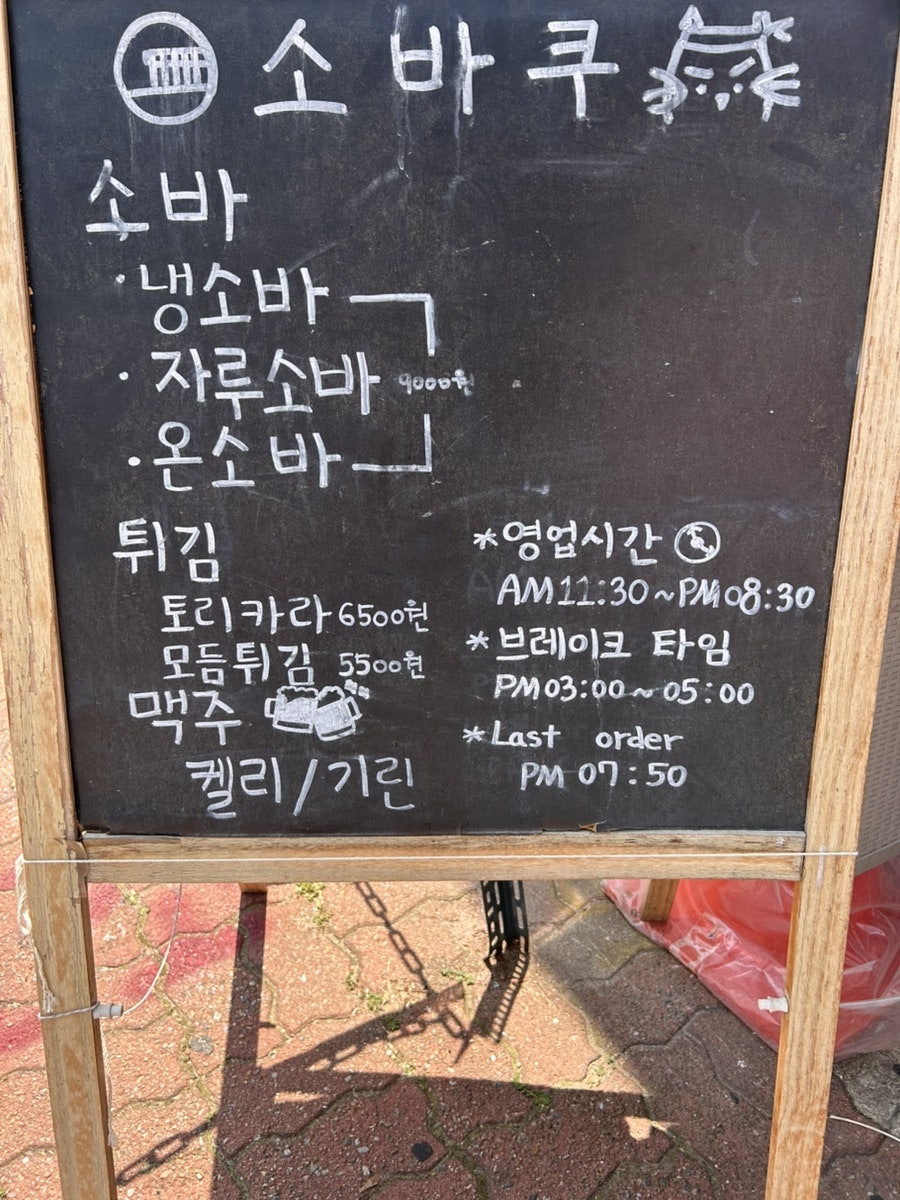 소바쿠
소바
· 냉소바
· 자루소바 9000원
· 온소바
튀김
토리카라 6500원
모듬튀김 5500원
맥주
켈리/기린
*영업시간
AM 11:30 ~ PM 08:30
*브레이크 타임
PM 03:00 ~ 05:00
*Last order
PM 07:50